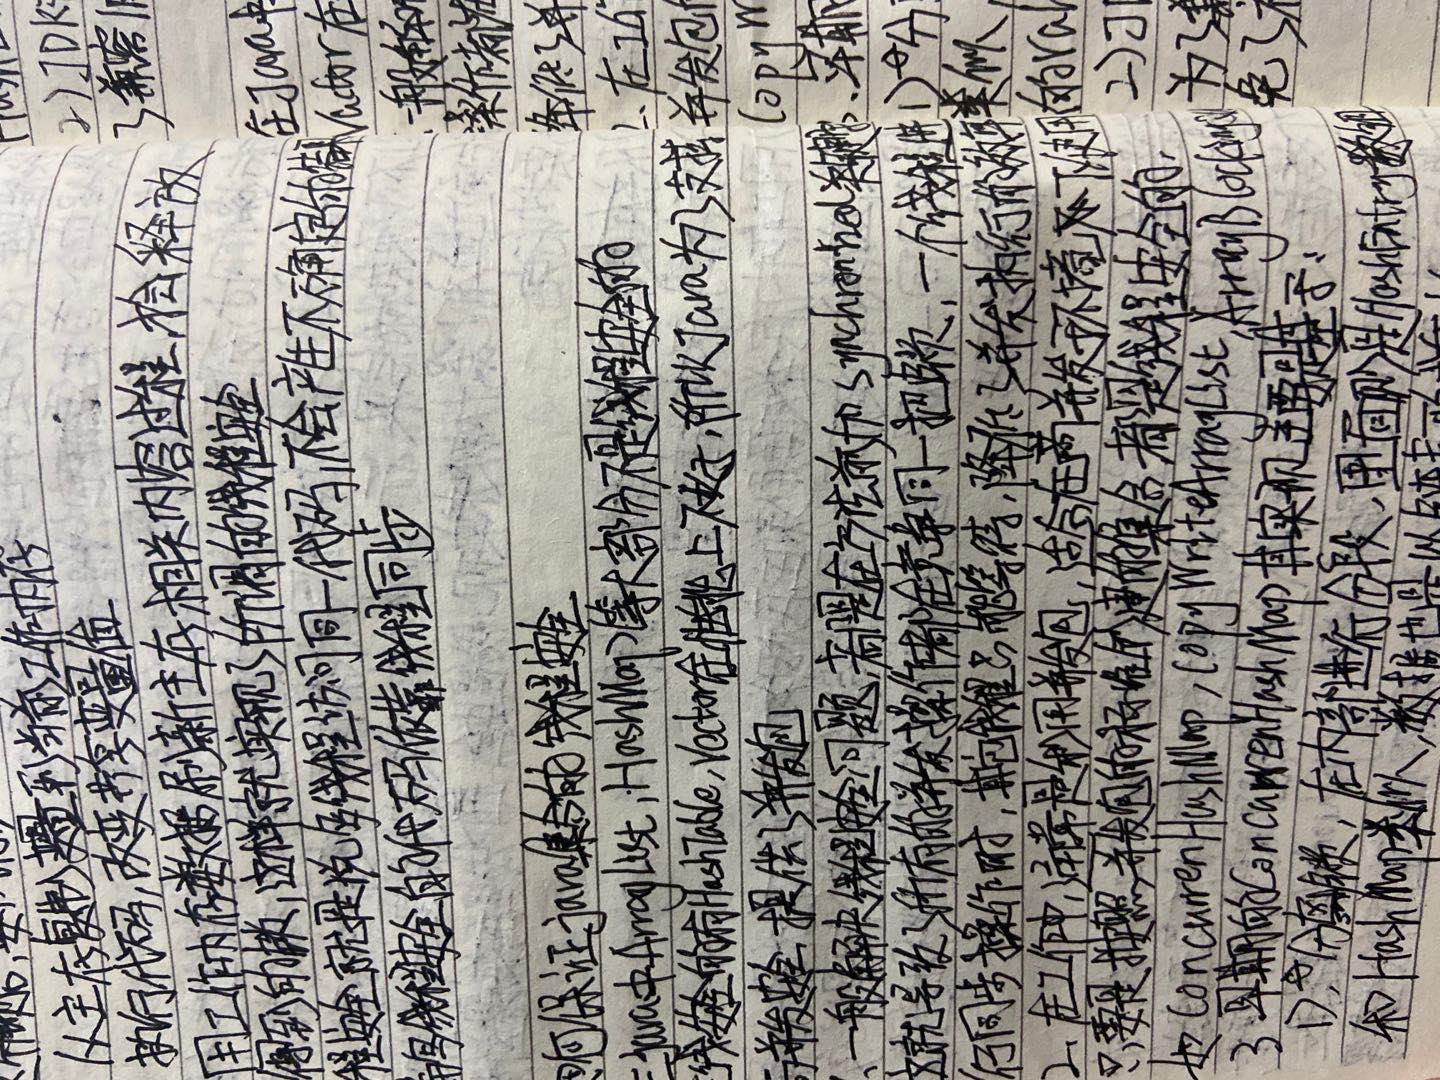 从主存复制变量到当前工作内存
执行代码,改变共享变量值
用工作内存数据刷新主存相关内容过程,会释放
得到的锁,这样就实现了所谓的线程安全
程安全就是说多线程访问同一代码,不会产生不确定的结果
线程安全的代码依靠线程同步
如何保证java集合的线程安全
java中ArrayList,HashMap等大部分不是线程安全的
线安全的有HashTable,Vector在性能上不好,所以Java为了支持
并发安全,提供了并发包
一般解决线程安全问题,都是在方法前加synchronized关键字
这就导致了所有的并发操作都在竞争同一把锁,一个线程进
行同步操作时,其它线程只能等待,降低了并发执行的效率
2、在工作中,通常是利用并发包,适合在高并发环境下使用
只要是按照并发包的标准创建的集合都是线程安全的,
如ConcurrenHashMap,CopyWriteArrayList,ArrayBlocking
3 早期的ConcurrenHashMap其实现主要是基于:
1),分离锁,在内部进行分段,里面则是HashEntry数组
和HashMap类似,数据也是以
2)JDK
了兼容
在Java中
Vactor在
一般解
操作都在
降低了并
2、在工作
并发包
CopyW
早期
1)分
类似,
的val
2)J
为了兼
免了